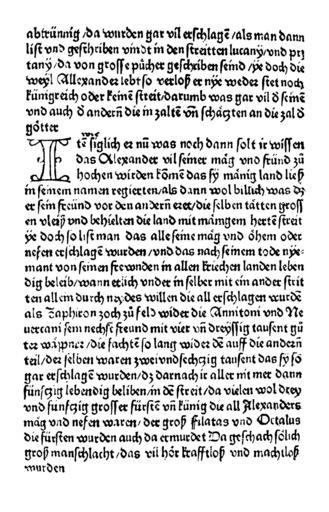 abtrünnig/da wurden gar vil erschlagē/als man dann
list vnd geschriben vindt in den streitten lucany/vnd pri
tany/da von grosse pücher geschriben seind/ye doch die
weyl Allexander lebt so verloß er nye weder stet noch
künigreich oder keinē streit/darumb was gar vil d seinē
vnd auch d anderē die in zaltē vn̄ schäczten an die zal d
götter
ITē wie siglich er nū was noch dann solt ir wissen
das Alexander vil seiner mäg vnd freünd zů
hochen wirden kōme das sy mänig land ließ
in seinem namen regierten/als dann wol billich was dz
er sein freünd vor den andern eret/die selben tätten gross
en vleiß vnd behielten die land mit mānigem hertē streit
ye doch so list man das alle seine mäg vnd öhem oder
nefen erschlagē wurden/vnd das nach seinem tode nye-
mant von seinen frewnden in allen kriechen landen leben
dig beleib/wann etlich vnder in selber mit ein ander strit
ten allein durch neydes willen die all erschlagen wurdē
als Zaphiron zoch zů feld wider die Annitoni vnd Ne
uercani sein nechst freund mit vier vn̄ dreyssig tausent gů
ter wäppner/die fachtē so lang wider dē auff die andern
teil/der selben waren zwei vnd sechczig tausent das sy so
gar erschlagē wurden/dz darnach ir aller nit mer dann
fünfczig lebendig beliben/in dē streit/da vielen wol drey
vnd funfczig grosser fürstē vn̄ künig die all Alexanders
mäg vnd nefen waren/der groß Filatas vnd Octalus
die fürsten wurden auch da ermürdet Da geschach sölich
groß manschlacht/das vil hör krafftloß vnd machtloß
wurden